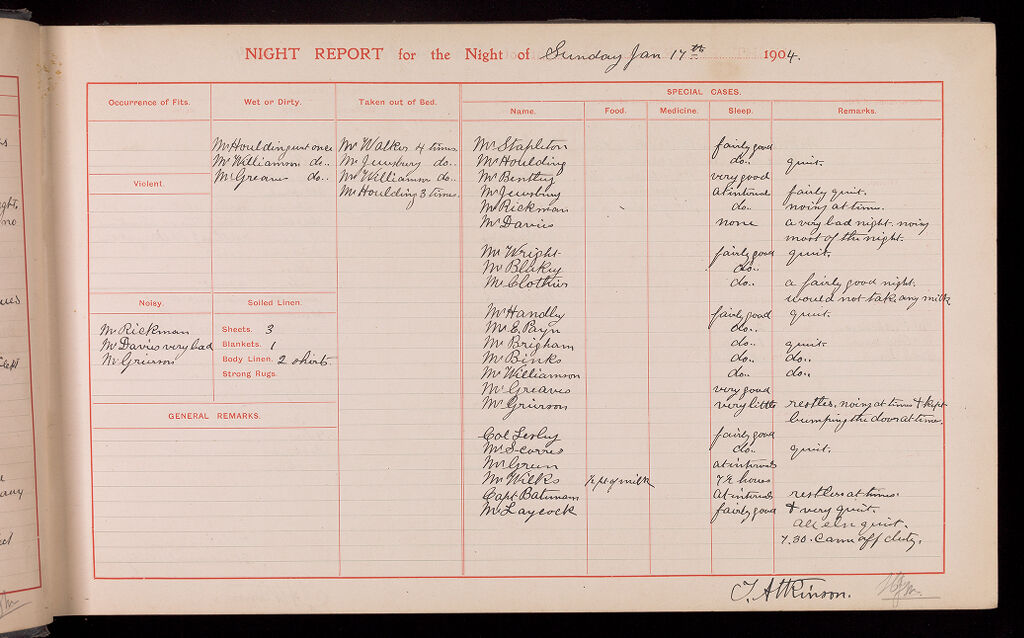 NIGHT REPORT for the Night of Sunday Jan 17th 1904.
Occurrence of Fits. Wet or Dirty. Taken out of Bed. SPECIAL CASES.
Name. Food. Medicine. Sleep. Remarks.
Mr Houlding wet once Mr Walker 4 times. Mr Stapleton fairly good
Mr Williamson do.. Mr Jewsbury do.. Mr Houlding do.. quiet.
Mr Greaves do.. Mr Williamson do.. Mr Bentley very good
Violent. Mr Houlding 3 times. Mr Jewsbury at intervals fairly quiet.
Mr Rickman do.. noisy at times.
Mr Davies none a very bad night. noisy
most of the night.
Mr Wright fairly good quiet.
Mr Blakey do..
Mr Clothier do.. a fairly good night.
would not take any milk
Noisy. Soiled Linen.
Mr Handley fairly good quiet.
Mr Rickman Sheets. 3 Mr E. Payn do..
Mr Davies very bad Blankets. 1 Mr Brigham do.. quiet.
Mr Grierson Body Linen. 2 shirts. Mr Binks do.. do..
Strong Rugs. Mr Williamson do.. do..
Mr Greaves very good
GENERAL REMARKS. Mr Grierson very little restless. noisy at times & kept
bumping the door at times.
Col Lesley fairly good
Mr Scorres do.. quiet.
Mr Green at intervals
Mr Wilks milk 7½ hours
Capt Bateman at intervals restless at times.
Mr Laycock fairly good & very quiet.
All else quiet.
7.30. Came off duty.
T. Atkinson.